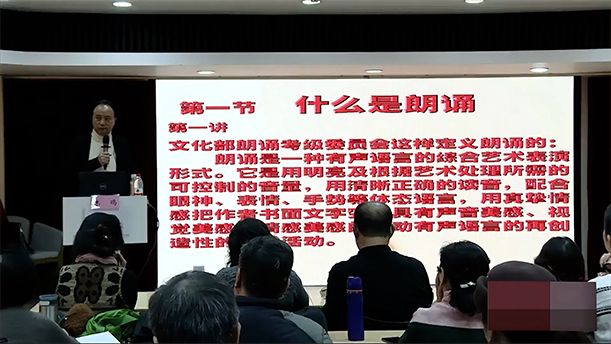 第一节 什么是朗诵
第一讲
文化部朗诵考级委员会这样定义朗诵的：
朗诵是一种有声语言的综合艺术表演
形式。它是用明亮及根据艺术处理所需的
可控制的音量，用清晰正确的读音，配合
眼神、表情、手势等体态语言，用真挚情
感把作者书面文字 具有声音美感、视
觉美感 情感美感 动有声语言的再创
造性的 活动。